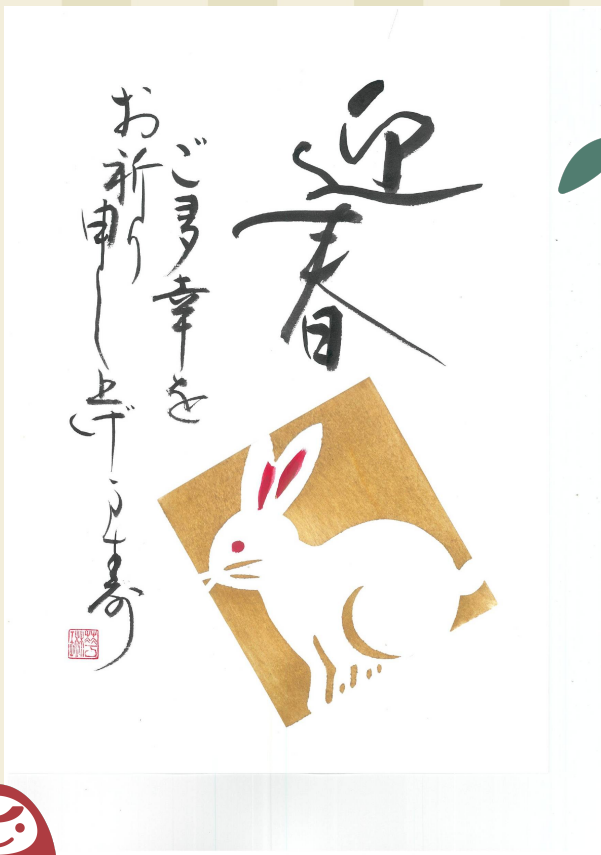 迎春
ご多幸を
お祈り申し上げます